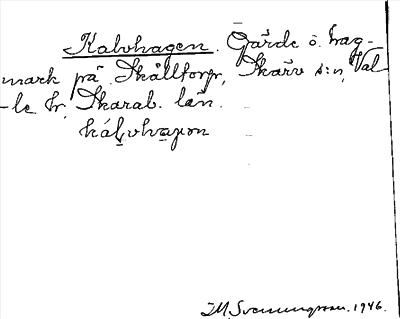 Kalvhagen. Gärde o. hag-
mark på Skålltorp, Skärv s:n, Val-
-le hr, Skarab. län.
kálvhaɡɔn
J M Svenungsson. 1946.